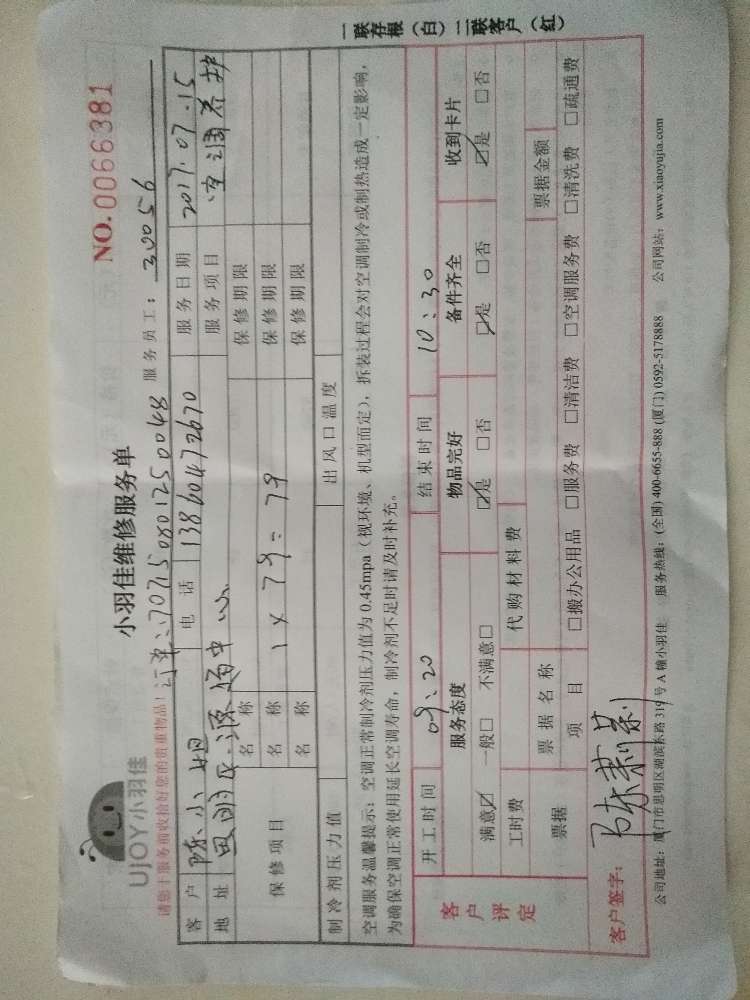 一联存根（白）二联客户（红）
UJOY小羽佳
小羽佳维修服务单
NO.0066381
请您于服务前收拾好您的贵重物品！订单:170715080125 0048 服务员工：30056
客户 陈小姐 电话 13860472670 服务日期 2017.07.15
地址 思明区 源杨中心 服务项目 空调养护
保修项目 名称 保修期限
名称 1×79=79 保修期限
名称 保修期限
制冷剂压力值 出风口温度
空调服务温馨提示：空调正常制冷剂压力值为0.45mpa（视环境、机型而定），拆装过程会对空调制冷或制热造成一定影响，
为确保空调正常使用延长空调寿命，制冷剂不足时请及时补充。
客户评定 开工时间 09:20 结束时间 10:30
服务态度 物品完好 备件齐全 收到卡片
满意☑ 一般□ 不满意□ ☑是 □否 ☑是 □否 ☑是 □否
工时费 代购材料费
票据 票据名称 票据金额
项目 □搬办公用品 □服务费 □清洁费 □空调服务费 □清洗费 □疏通费
客户签字：陈莉莉
公司地址：厦门市思明区湖滨东路319号A幢小羽佳 服务热线：(全国) 400-6655-888 (厦门) 0592-5178888 公司网站：www.xiaoyujia.com